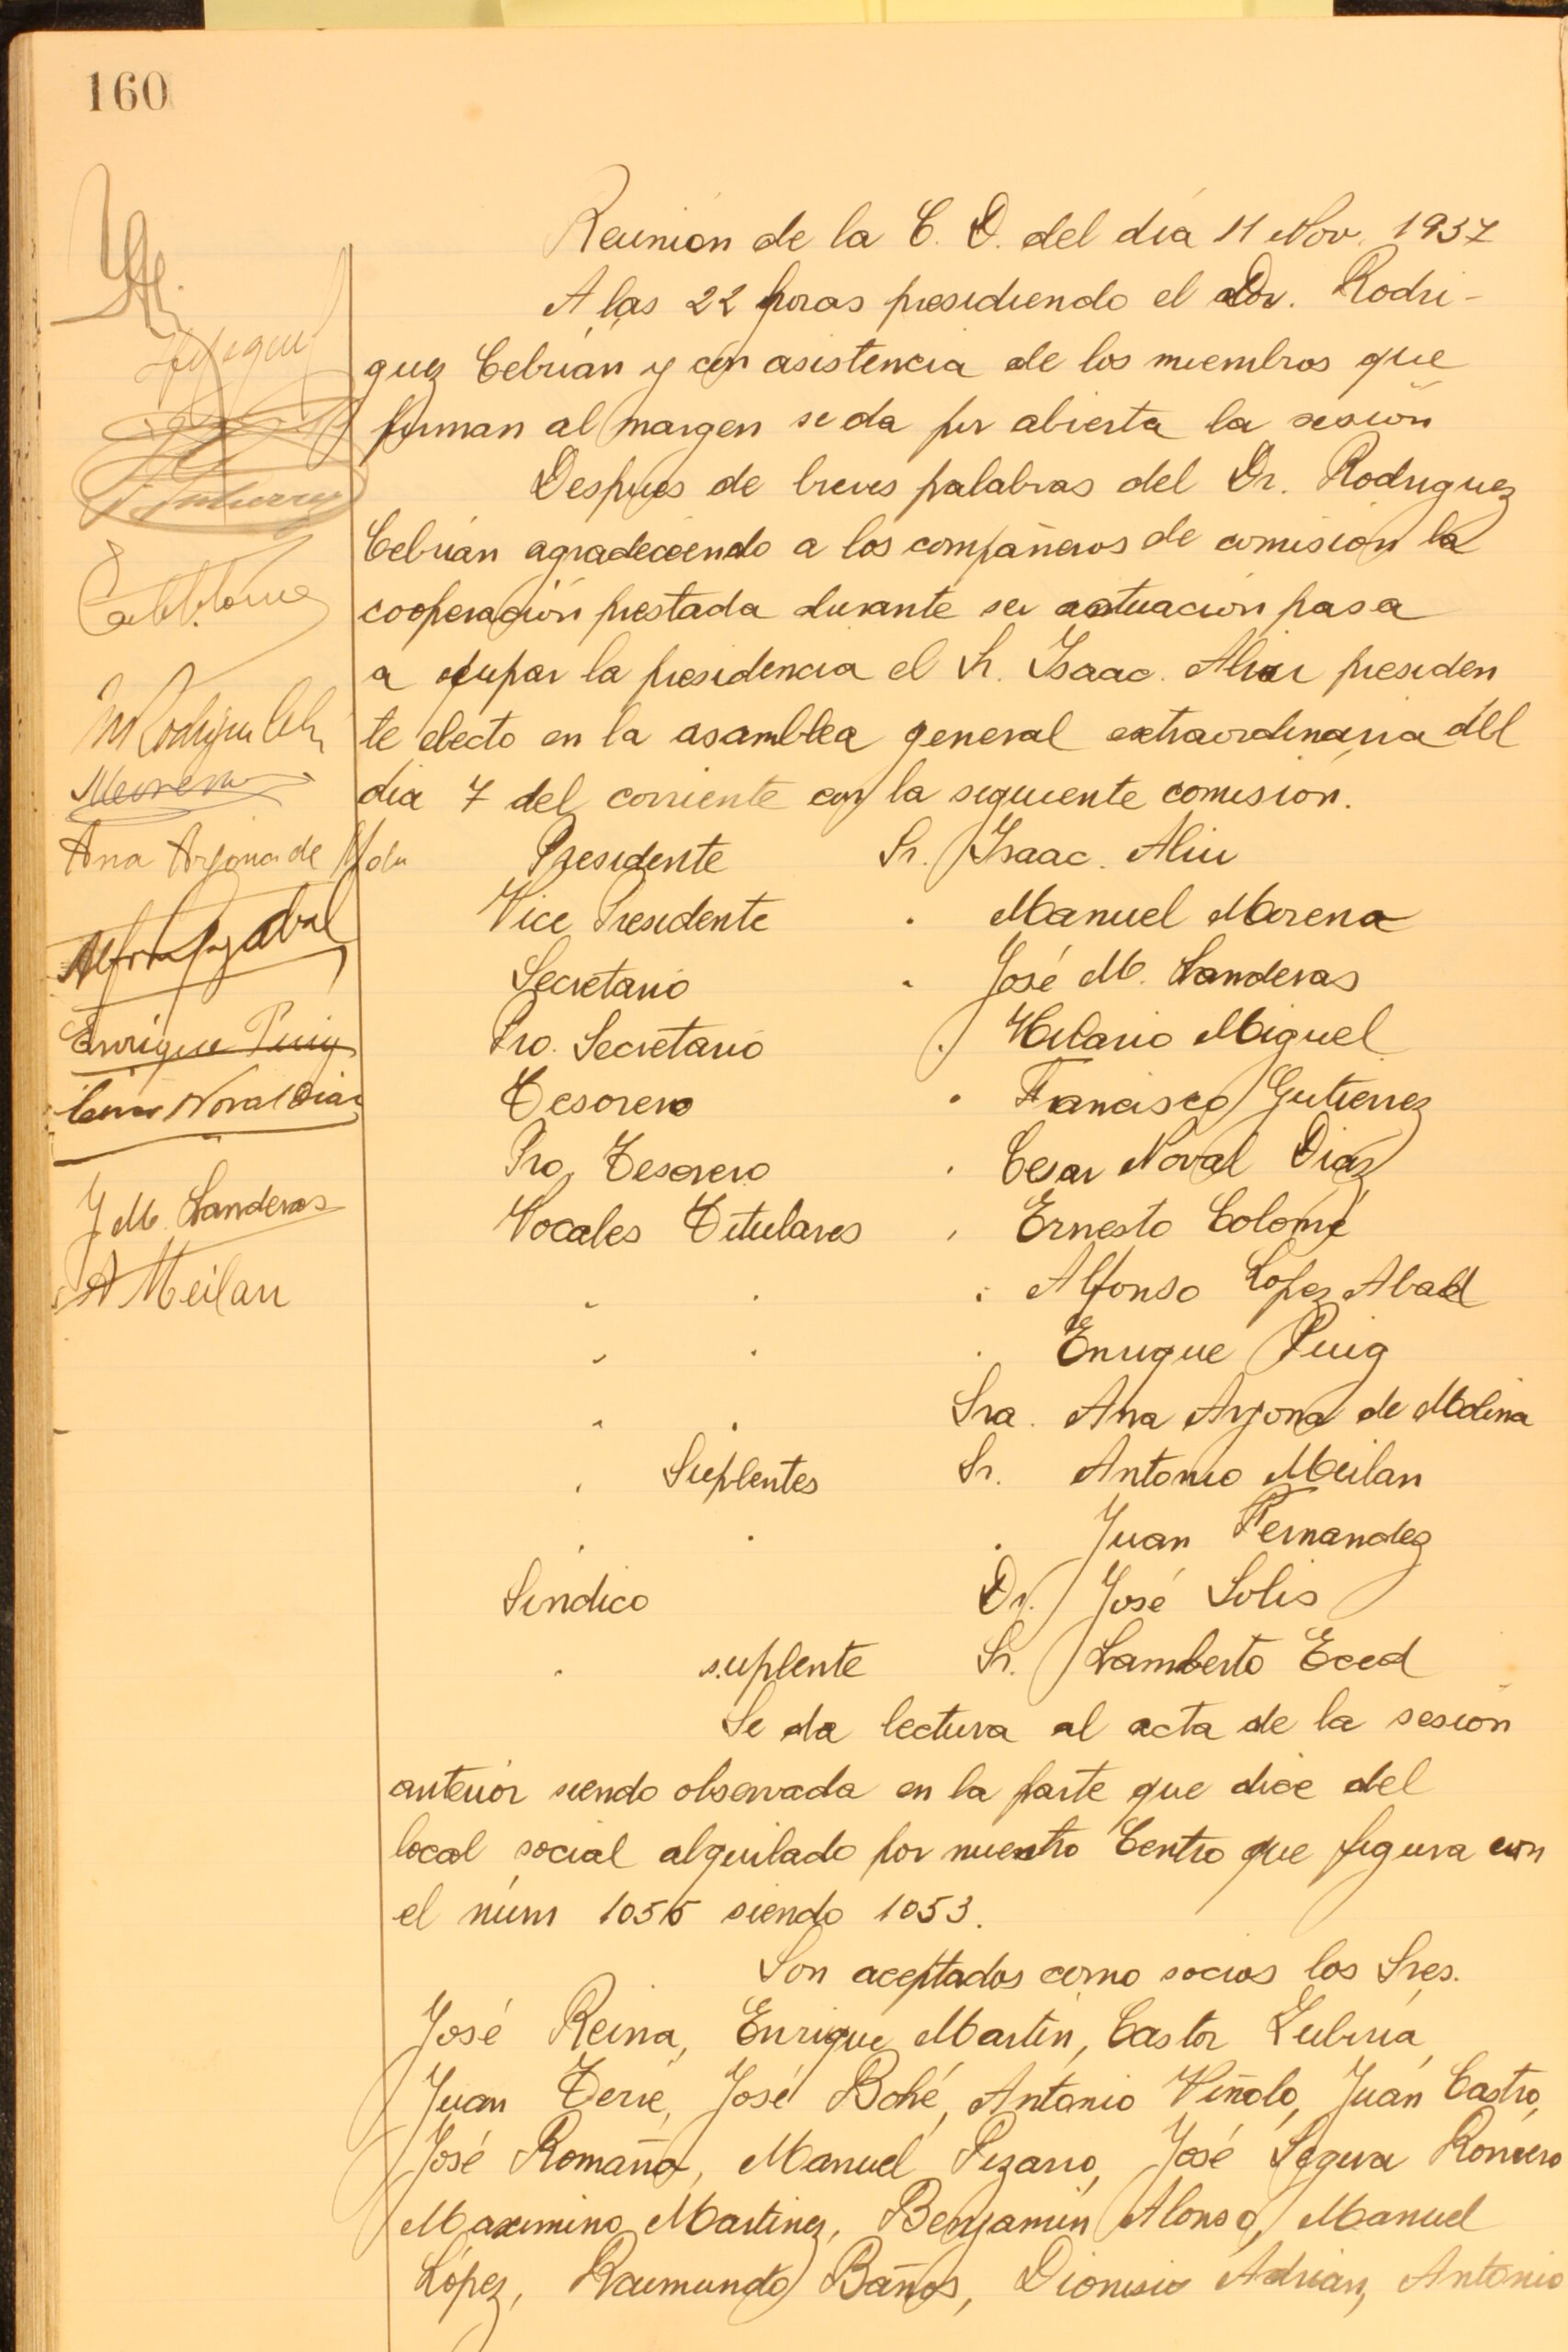 160
Reunion de la C. D. del dia 11 Nov. 1937
A las 22 horas presidiendo el Dr. Rodri-
guez Cebrian y con asistencia de los miembros que
firman al margen se da por abierta la sesion
Despues de breves palabras del Dr. Rodriguez
Cebrian agradeciendo a los compañeros de comision la
cooperacion prestada durante su actuacion pasa
a ocupar la presidencia el Sr. Isaac. Aliu presiden
te electo en la asamblea general extraordinaria del
dia 7 del corriente con la siguiente comision.
Presidente Sr. Isaac. Aliu
Vice Presidente . Manuel Morena
Secretario . José M. Landeras
Pro. Secretario . Hilario Miguel
Tesorero . Francisco Gutierrez
Pro, Tesorero . Cesar Noval Diaz
Vocales Titulares . Ernesto Colomé
. . . Alfonso Lopez Abad
. . . Enrique Puig
. . Sra. Ana Arjona de Molina
. Suplentes Sr. Antonio Meilan
. . . Juan Fernandez
Sindico Dr. José Solis
. suplente Sr. Lamberto Eced
Se da lectura al acta de la sesion
anterior siendo observada en la parte que dice del
local social alquilado por nuestro Centro que figura con
el núm 1055 siendo 1053.
Son aceptados como socios los Sres.
José Reina, Enrique Martin, Castor Lubiria,
Juan Terre, José Bohé, Antonio Viñolo, Juan Castro,
José Romaña, Manuel Pizarro, José Segura Romero
Maximino Martinez, Benjamin Alonso, Manuel
López, Raimundo Baños, Dionisio Adrian, Antonio
Gutierrez
Moreno
Ana Arjona de Mola
Enrique Puig
Cesar Noval Diaz
J M. Landeras
A Meilan